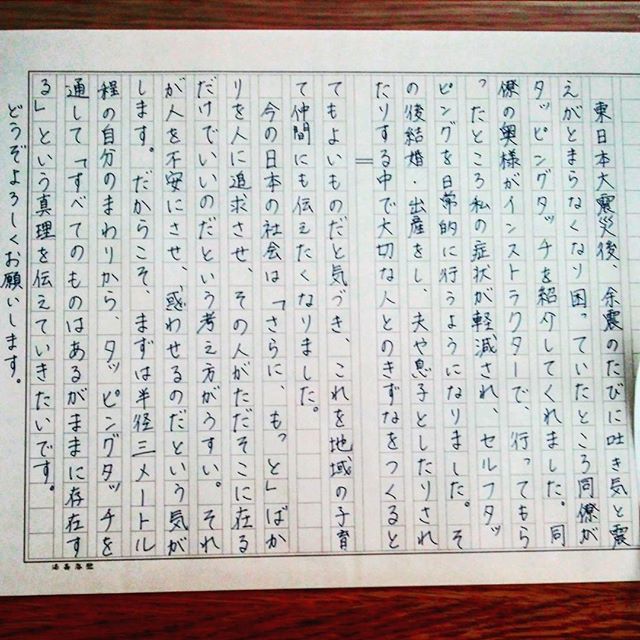 東日本大震災後、余震のたびに吐き気と震
えがとまらなくなり困っていたところ同僚が
タッピングタッチを紹介してくれました。同
僚の奥様がインストラクターで、行ってもら
ったところ私の症状が軽減され、セルフタッ
ピングを日常的に行うようになりました。そ
の後結婚・出産をし、夫や息子としたりされ
たりする中で大切な人とのきずなをつくると
てもよいものだと気づき、これを地域の子育
て仲間にも伝えたくなりました。
今の日本の社会は「さらに、もっと」ばか
りを人に追求させ、その人がただそこに在る
だけでいいのだという考え方がうすい。それ
が人を不安にさせ、惑わせるのだという気が
します。だからこそ、まずは半径三メートル
程の自分のまわりから、タッピングタッチを
通して「すべてのものはあるがままに存在す
る」という真理を伝えていきたいです。
どうぞよろしくお願いします。